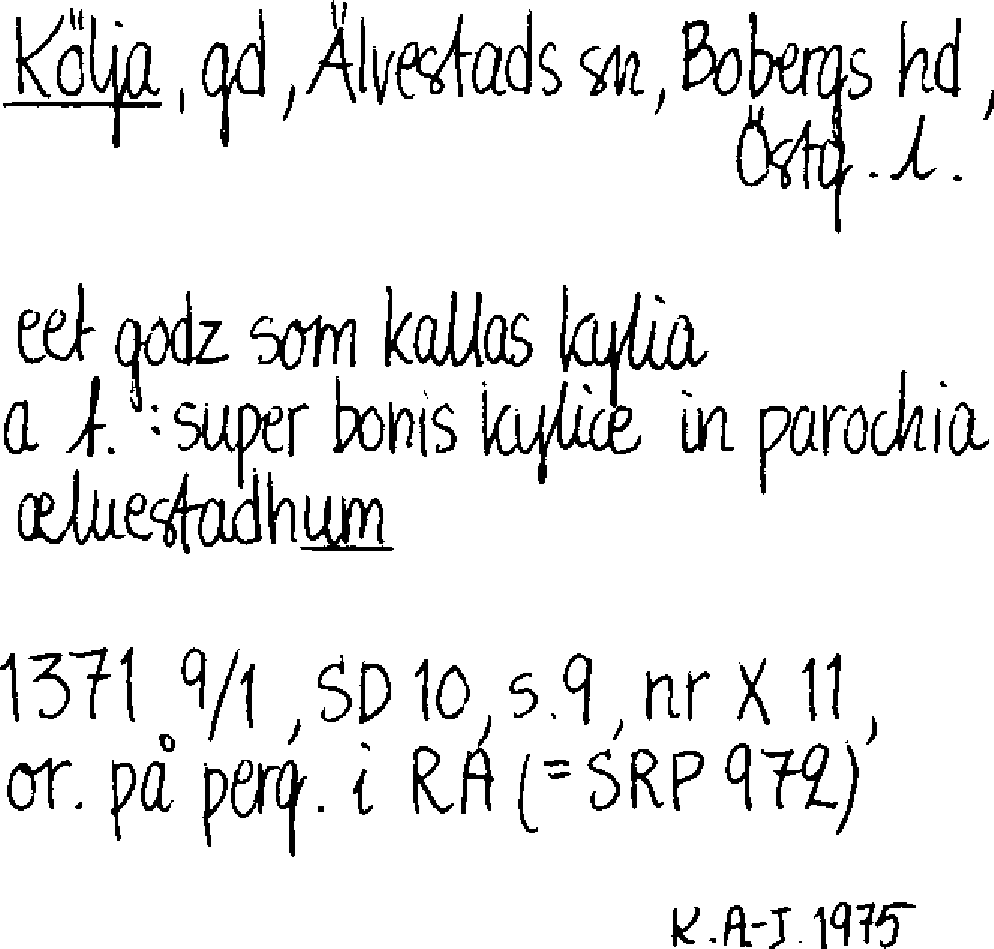 Kölja, gd, Älvestads sn, Bobergs hd,
Östg. l.
eet godz som kallas kylia
a t. : super bonis kyliæ in parochia
æluestadhum
1371 9/1, SD 10, s. 9, nr X 11,
or. på perg. i RA (= SRP 972)
K. A-J. 1975